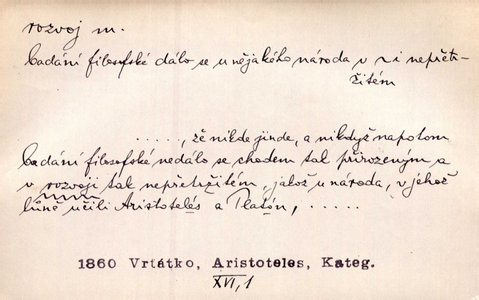 rozvoj m.
badání filosofské dálo se u nějakého národa v r-i nepřetr-
žitém
....., že nikde jinde, a nikdyž napotom
badání filosofské nedálo se chodem tak přirozeným a
v rozvoji tak nepřetržitém, jakož u národa, v jehož
lůně učili Aristotelés a Platón, .....
1860 Vrťátko, Aristoteles, Kateg.
XVI, 1